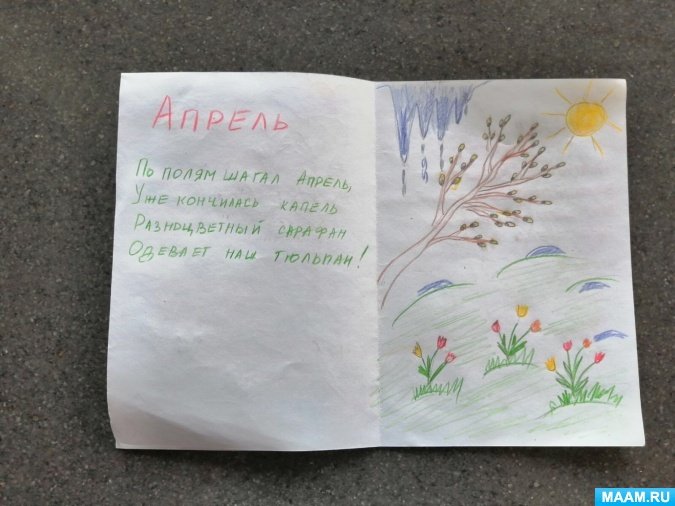 АПРЕЛЬ
ПО ПОЛЯМ ШАГАЛ АПРЕЛЬ,
УЖЕ КОНЧИЛАСЬ КАПЕЛЬ
РАЗНОЦВЕТНЫЙ САРАФАН
ОДЕВАЕТ НАШ ТЮЛЬПАН!
MAAM.RU